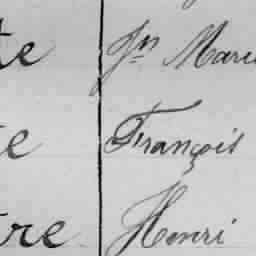 te Jn Marie
e François
tre Henri